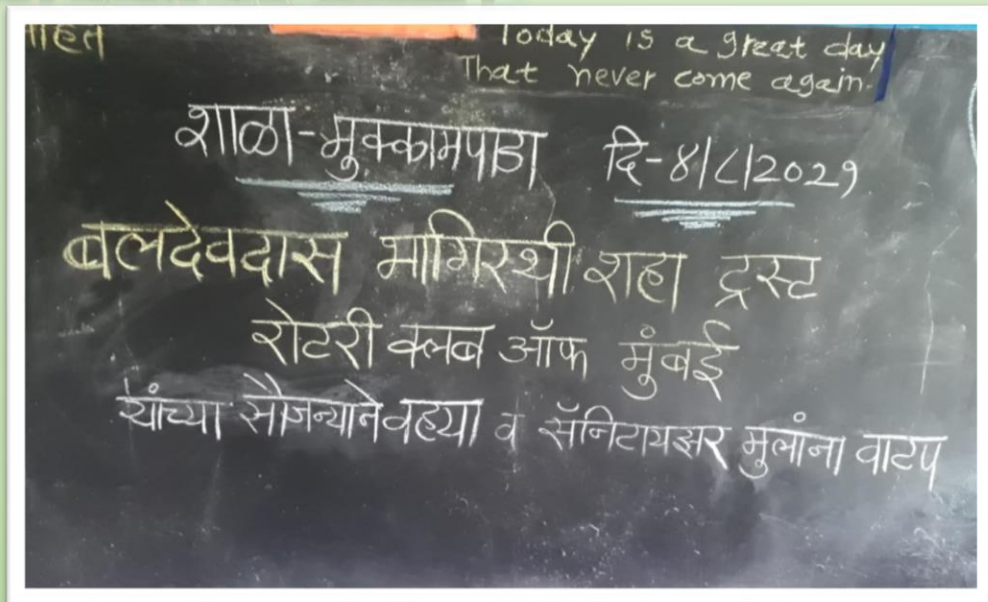 Today is a great day
That never come again.
शाळा-मुक्कामपाडा दि-४/८/२०२१
बलदेवदास भागिरथी शहा ट्रस्ट
रोटरी क्लब ऑफ मुंबई
यांच्या सौजन्याने वहया व सॅनिटायझर मुलांना वाटप